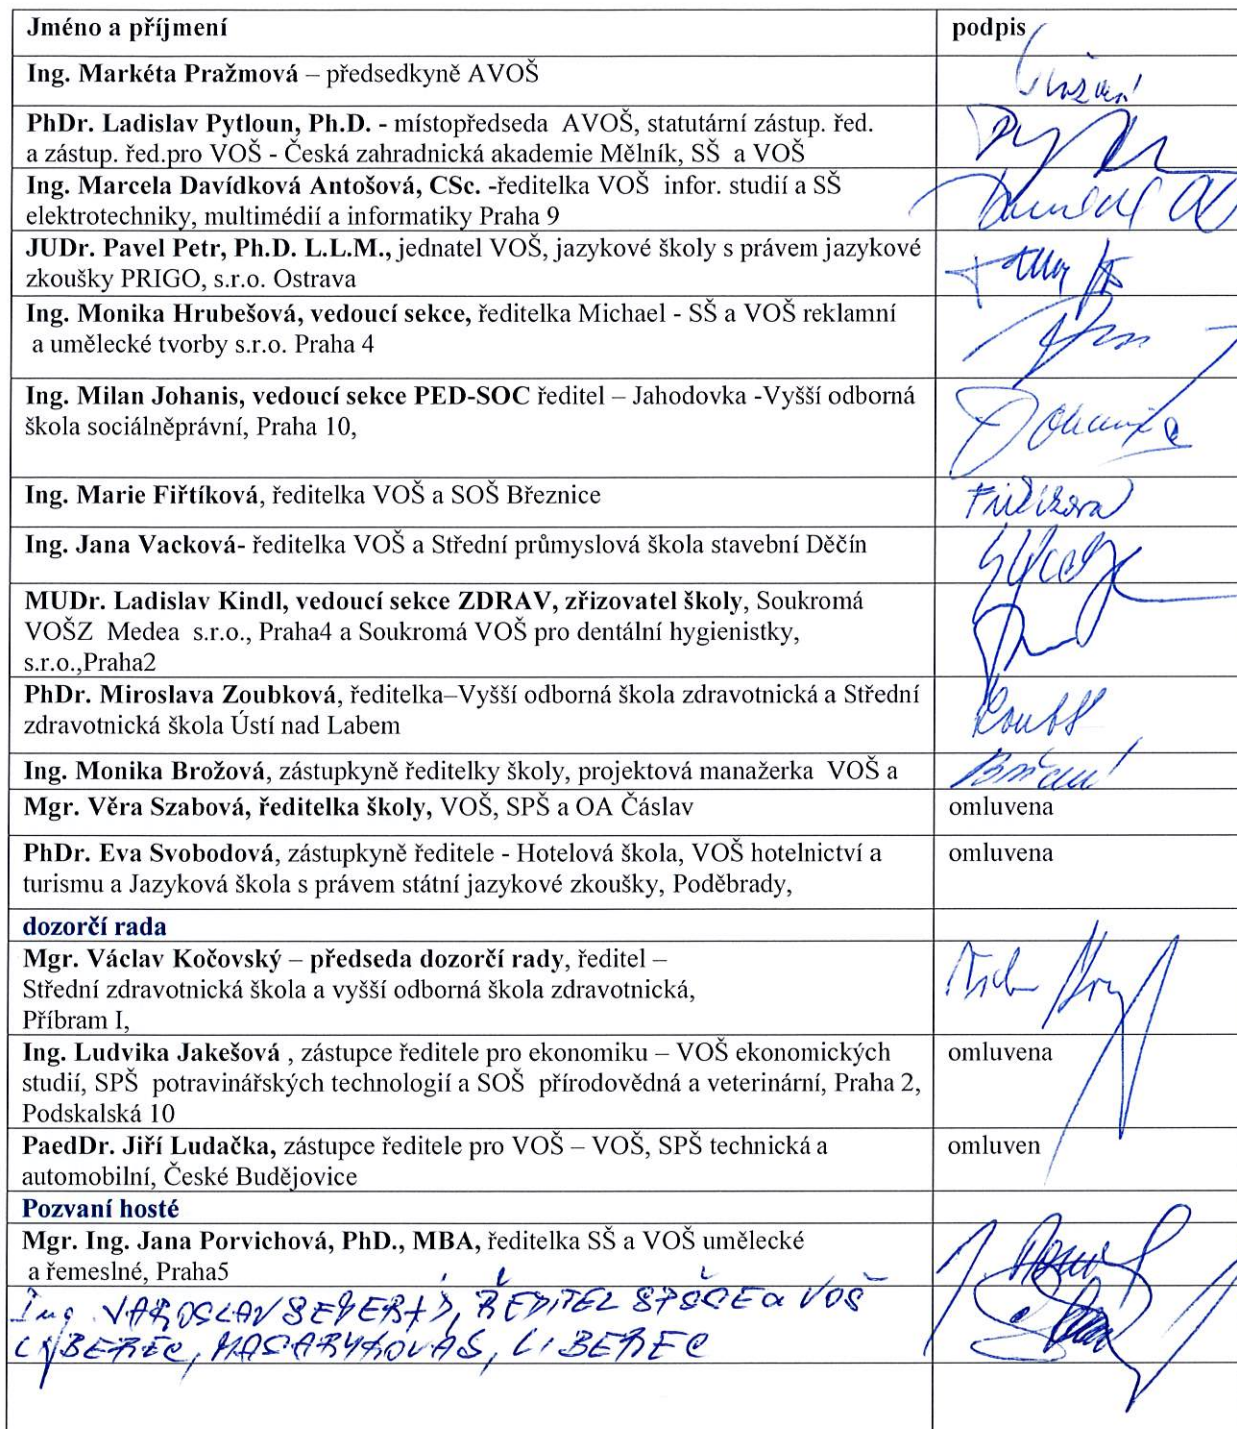 Jméno a příjmení podpis
Ing. Markéta Pražmová – předsedkyně AVOŠ
PhDr. Ladislav Pytloun, Ph.D. - místopředseda AVOŠ, statutární zástup. řed.
a zástup. řed.pro VOŠ - Česká zahradnická akademie Mělník, SŠ a VOŠ
Ing. Marcela Davídková Antošová, CSc. -ředitelka VOŠ infor. studií a SŠ
elektrotechniky, multimédií a informatiky Praha 9
JUDr. Pavel Petr, Ph.D. L.L.M., jednatel VOŠ, jazykové školy s právem jazykové
zkoušky PRIGO, s.r.o. Ostrava
Ing. Monika Hrubešová, vedoucí sekce, ředitelka Michael - SŠ a VOŠ reklamní
a umělecké tvorby s.r.o. Praha 4
Ing. Milan Johanis, vedoucí sekce PED-SOC ředitel – Jahodovka -Vyšší odborná
škola sociálněprávní, Praha 10,
Ing. Marie Fiřtíková, ředitelka VOŠ a SOŠ Březnice
Ing. Jana Vacková- ředitelka VOŠ a Střední průmyslová škola stavební Děčín
MUDr. Ladislav Kindl, vedoucí sekce ZDRAV, zřizovatel školy, Soukromá
VOŠZ Medea s.r.o., Praha4 a Soukromá VOŠ pro dentální hygienistky,
s.r.o.,Praha2
PhDr. Miroslava Zoubková, ředitelka–Vyšší odborná škola zdravotnická a Střední
zdravotnická škola Ústí nad Labem
Ing. Monika Brožová, zástupkyně ředitelky školy, projektová manažerka VOŠ a
Mgr. Věra Szabová, ředitelka školy, VOŠ, SPŠ a OA Čáslav omluvena
PhDr. Eva Svobodová, zástupkyně ředitele - Hotelová škola, VOŠ hotelnictví a omluvena
turismu a Jazyková škola s právem státní jazykové zkoušky, Poděbrady,
dozorčí rada
Mgr. Václav Kočovský – předseda dozorčí rady, ředitel –
Střední zdravotnická škola a vyšší odborná škola zdravotnická,
Příbram I,
Ing. Ludvika Jakešová , zástupce ředitele pro ekonomiku – VOŠ ekonomických omluvena
studií, SPŠ potravinářských technologií a SOŠ přírodovědná a veterinární, Praha 2,
Podskalská 10
PaedDr. Jiří Ludačka, zástupce ředitele pro VOŠ – VOŠ, SPŠ technická a omluven
automobilní, České Budějovice
Pozvaní hosté
Mgr. Ing. Jana Porvichová, PhD., MBA, ředitelka SŠ a VOŠ umělecké
a řemeslné, Praha5
Ing. JAROSLAV ŘEDITEL a VOŠ
LIBEREC, LIBEREC